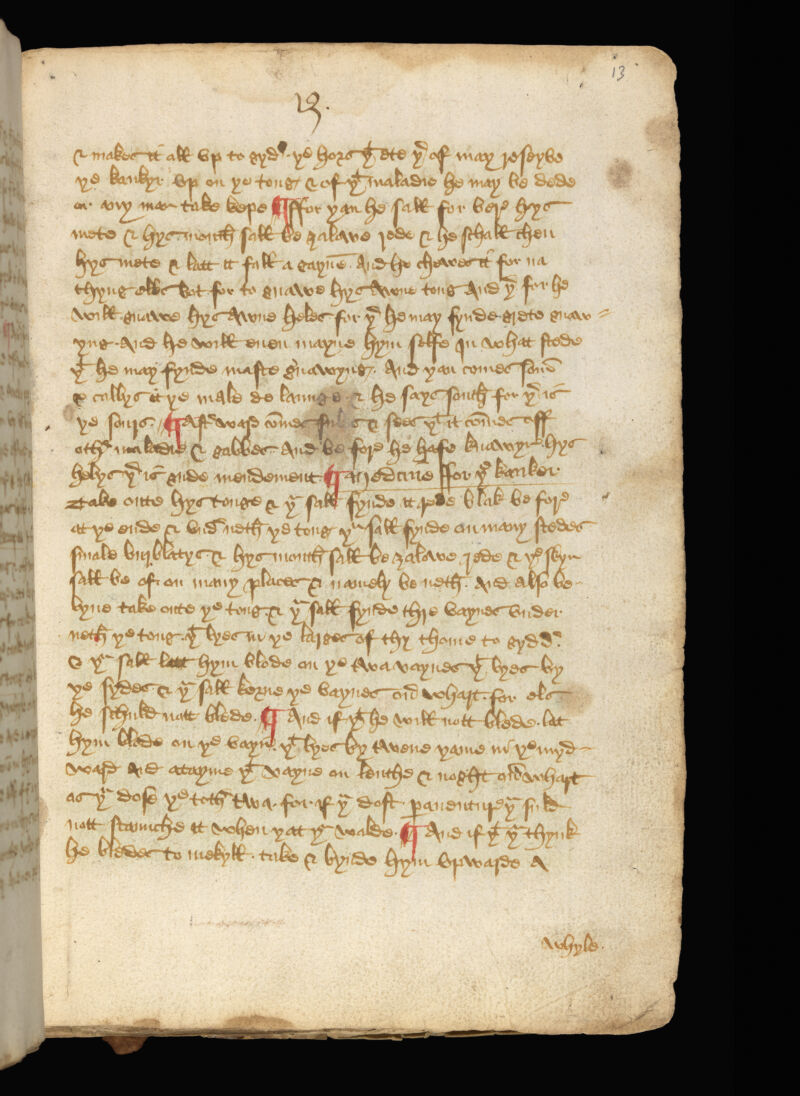 13
13.
& makes it all vp to gyd. ye hors yt ete yr of may reseyve
ye kankyr vp on ye tong & of yt maladie he may be dede
or any man take kepe ¶ ffor yan he sall for bere hys
mete & hys mouth sall be zalawe rede & he schall chew
hys mete & latt it fall a gayne. And he chewes it for na
thyng elles bot for to gnawe hys awne tong And yr for he
will gnawe hys awne heles for yt he may fynde grete gnaw=
yng. And he will euen mayne hym selfe In whatt stede
yt he may fynde maste gnawyng. And yan comes sone
& callys it ye male de lange & he says south for yt is
ye sonrs. ¶ Aftr ward comes & sees yt it comes off
othr maladie & gabbes And be fore he hafe knawyn hys
helys yr is gude mendement ¶ medcine ffor ye kanker
Take oute hys tonge & yu sall fynde it rede blak be fore
at ye ende & vndr neth ye tong yu sall fynde on many stedes
smale & hys mouth sall be zalawe rede & ye skyn
sall be of on many places & namely be neth. And also be
lyue take oute ye tong & yu sall fynde thre vaynes vnder
neth ye tong yt lyes in ye larges of thy thome to gyddr
& yu sall latt hym blode on ye twa vaynes yt lyes by
ye sydes & yu sall kerue ye vaynes ourwhart for els
he schuld nott blede. ¶ And if yt he will nott blede lat
hym blode on ye vayn yt lyes by twene yame in ye myd-
ward And atayme yt vayne on lenthe & noght ourwhart
as yu dose ye tothr twa. for if yu dost perauenture yu suld
nott stawnche it when yatt yu walde. ¶ And if yt yu thynk
he bledes to mekyll. take & bynde hym vpwarde A
whyle.